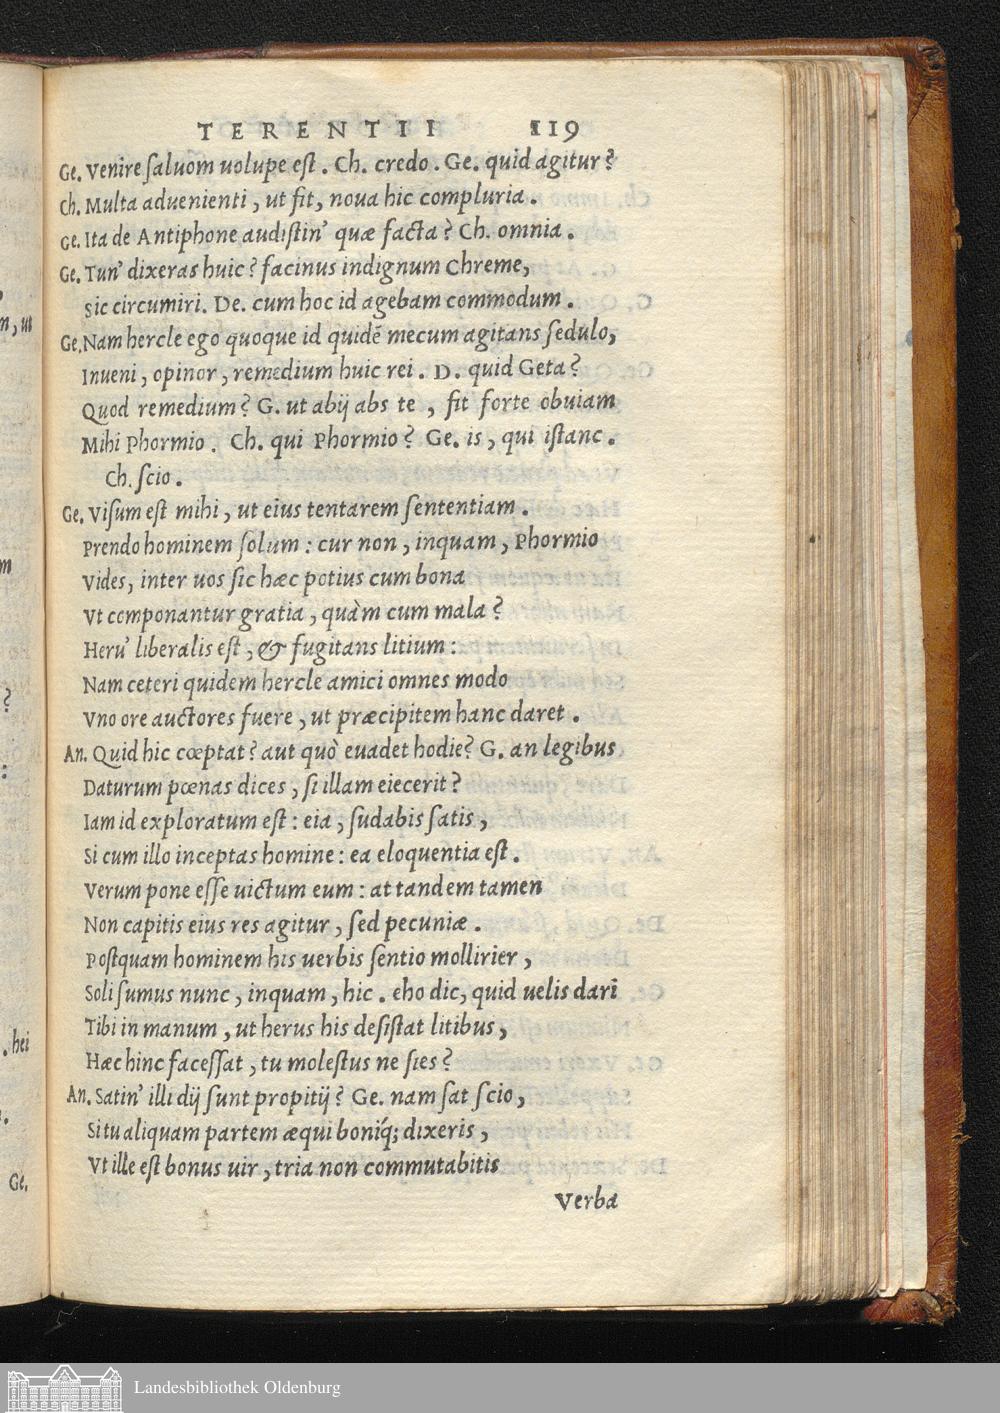 TERENTII 119
Ge. Venire saluom uolupe est. Ch. credo. Ge. quid agitur?
Ch. Multa aduenienti, ut fit, noua hic compluria.
Ge. Ita de Antiphone audistin' quæ facta? Ch. omnia.
Ge. Tun' dixeras huic? facinus indignum Chreme,
Sic circumiri. De. cum hoc id agebam commodum.
Ge. Nam hercle ego quoque id quidē mecum agitans sedulo,
Inueni, opinor, remedium huic rei. D. quid Geta?
Quod remedium? G. ut abij abs te, fit forte obuiam
Mihi Phormio. Ch. qui Phormio? Ge. is, qui istanc.
Ch. scio.
Ge. Visum est mihi, ut eius tentarem sententiam.
Prendo hominem solum: cur non, inquam, Phormio
Vides, inter uos sic hæc potius cum bona
Vt componantur gratia, quàm cum mala?
Heru' liberalis est, & fugitans litium:
Nam ceteri quidem hercle amici omnes modo
Vno ore auctores fuere, ut præcipitem hanc daret.
An. Quid hic cœptat? aut quò euadet hodie? G. an legibus
Daturum pœnas dices, si illam eiecerit?
Iam id exploratum est: eia, sudabis satis,
Si cum illo inceptas homine: ea eloquentia est.
Verum pone esse uictum eum: at tandem tamen
Non capitis eius res agitur, sed pecuniæ.
Postquam hominem his uerbis sentio mollirier,
Soli sumus nunc, inquam, hic. eho dic, quid uelis dari
Tibi in manum, ut herus his desistat litibus,
Hæc hinc facessat, tu molestus ne sies?
An. Satin' illi dij sunt propitij? Ge. nam sat scio,
Si tu aliquam partem æqui boniq́; dixeris,
Vt ille est bonus uir, tria non commutabitis
Verba
n, ut
m
?
:
. hei
Ge.
Landesbibliothek Oldenburg